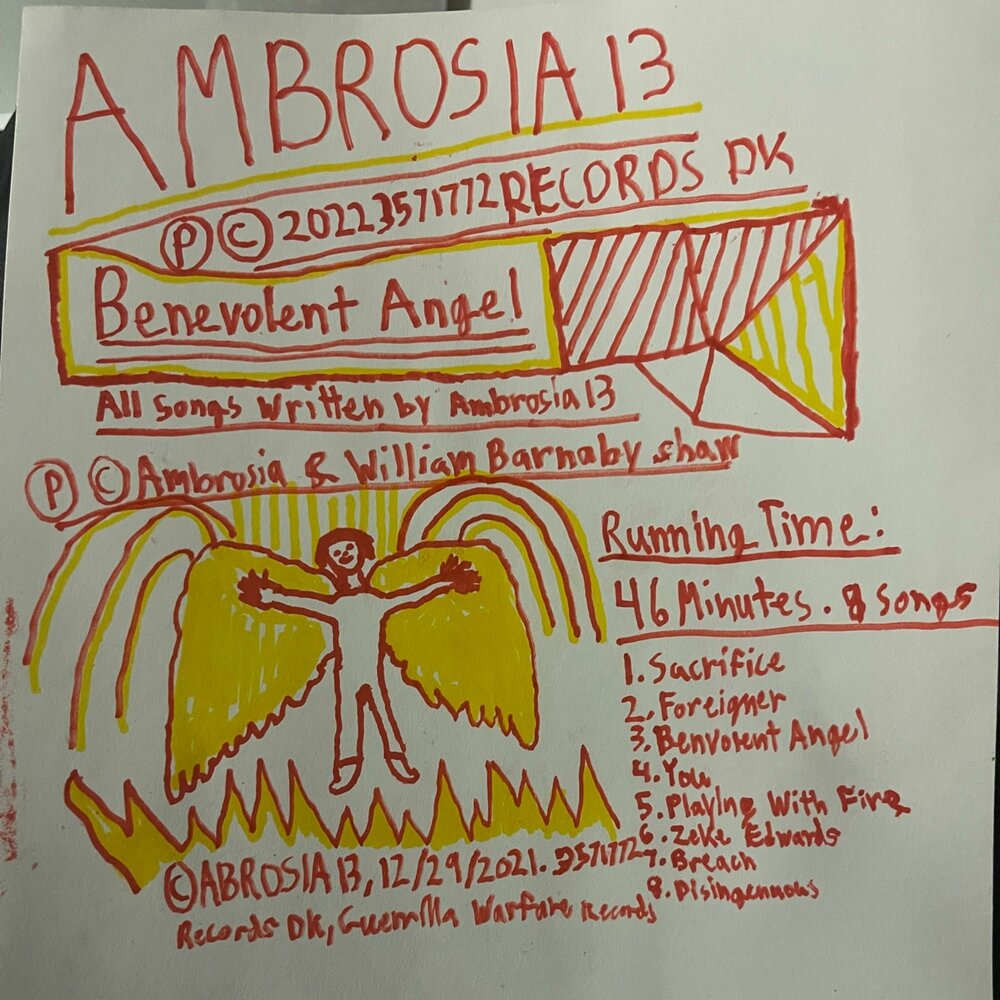 AMBROSIA 13
Ⓟ © 20223571772 RECORDS DK
Benevolent Angel
All songs written by Ambrosia 13
Ⓟ © Ambrosia & William Barnaby shaw
Running Time:
46 Minutes. 8 songs
1. Sacrifice
2. Foreigner
3. Benvolent Angel
4. You
5. Playing With Fire
6. Zeke Edwards
7. Breach
8. Disingenuous
© ABROSIA 13, 12/29/2021. 3571772
Records DK, Guerrilla Warfare Records